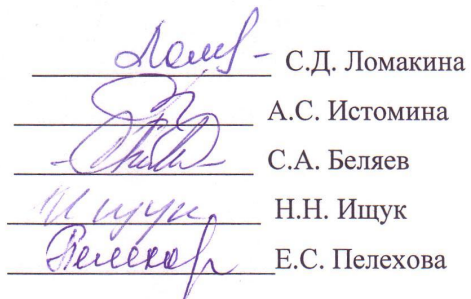 С.Д. Ломакина
А.С. Истомина
С.А. Беляев
Ищук Н.Н. Ищук
Е.С. Пелехова